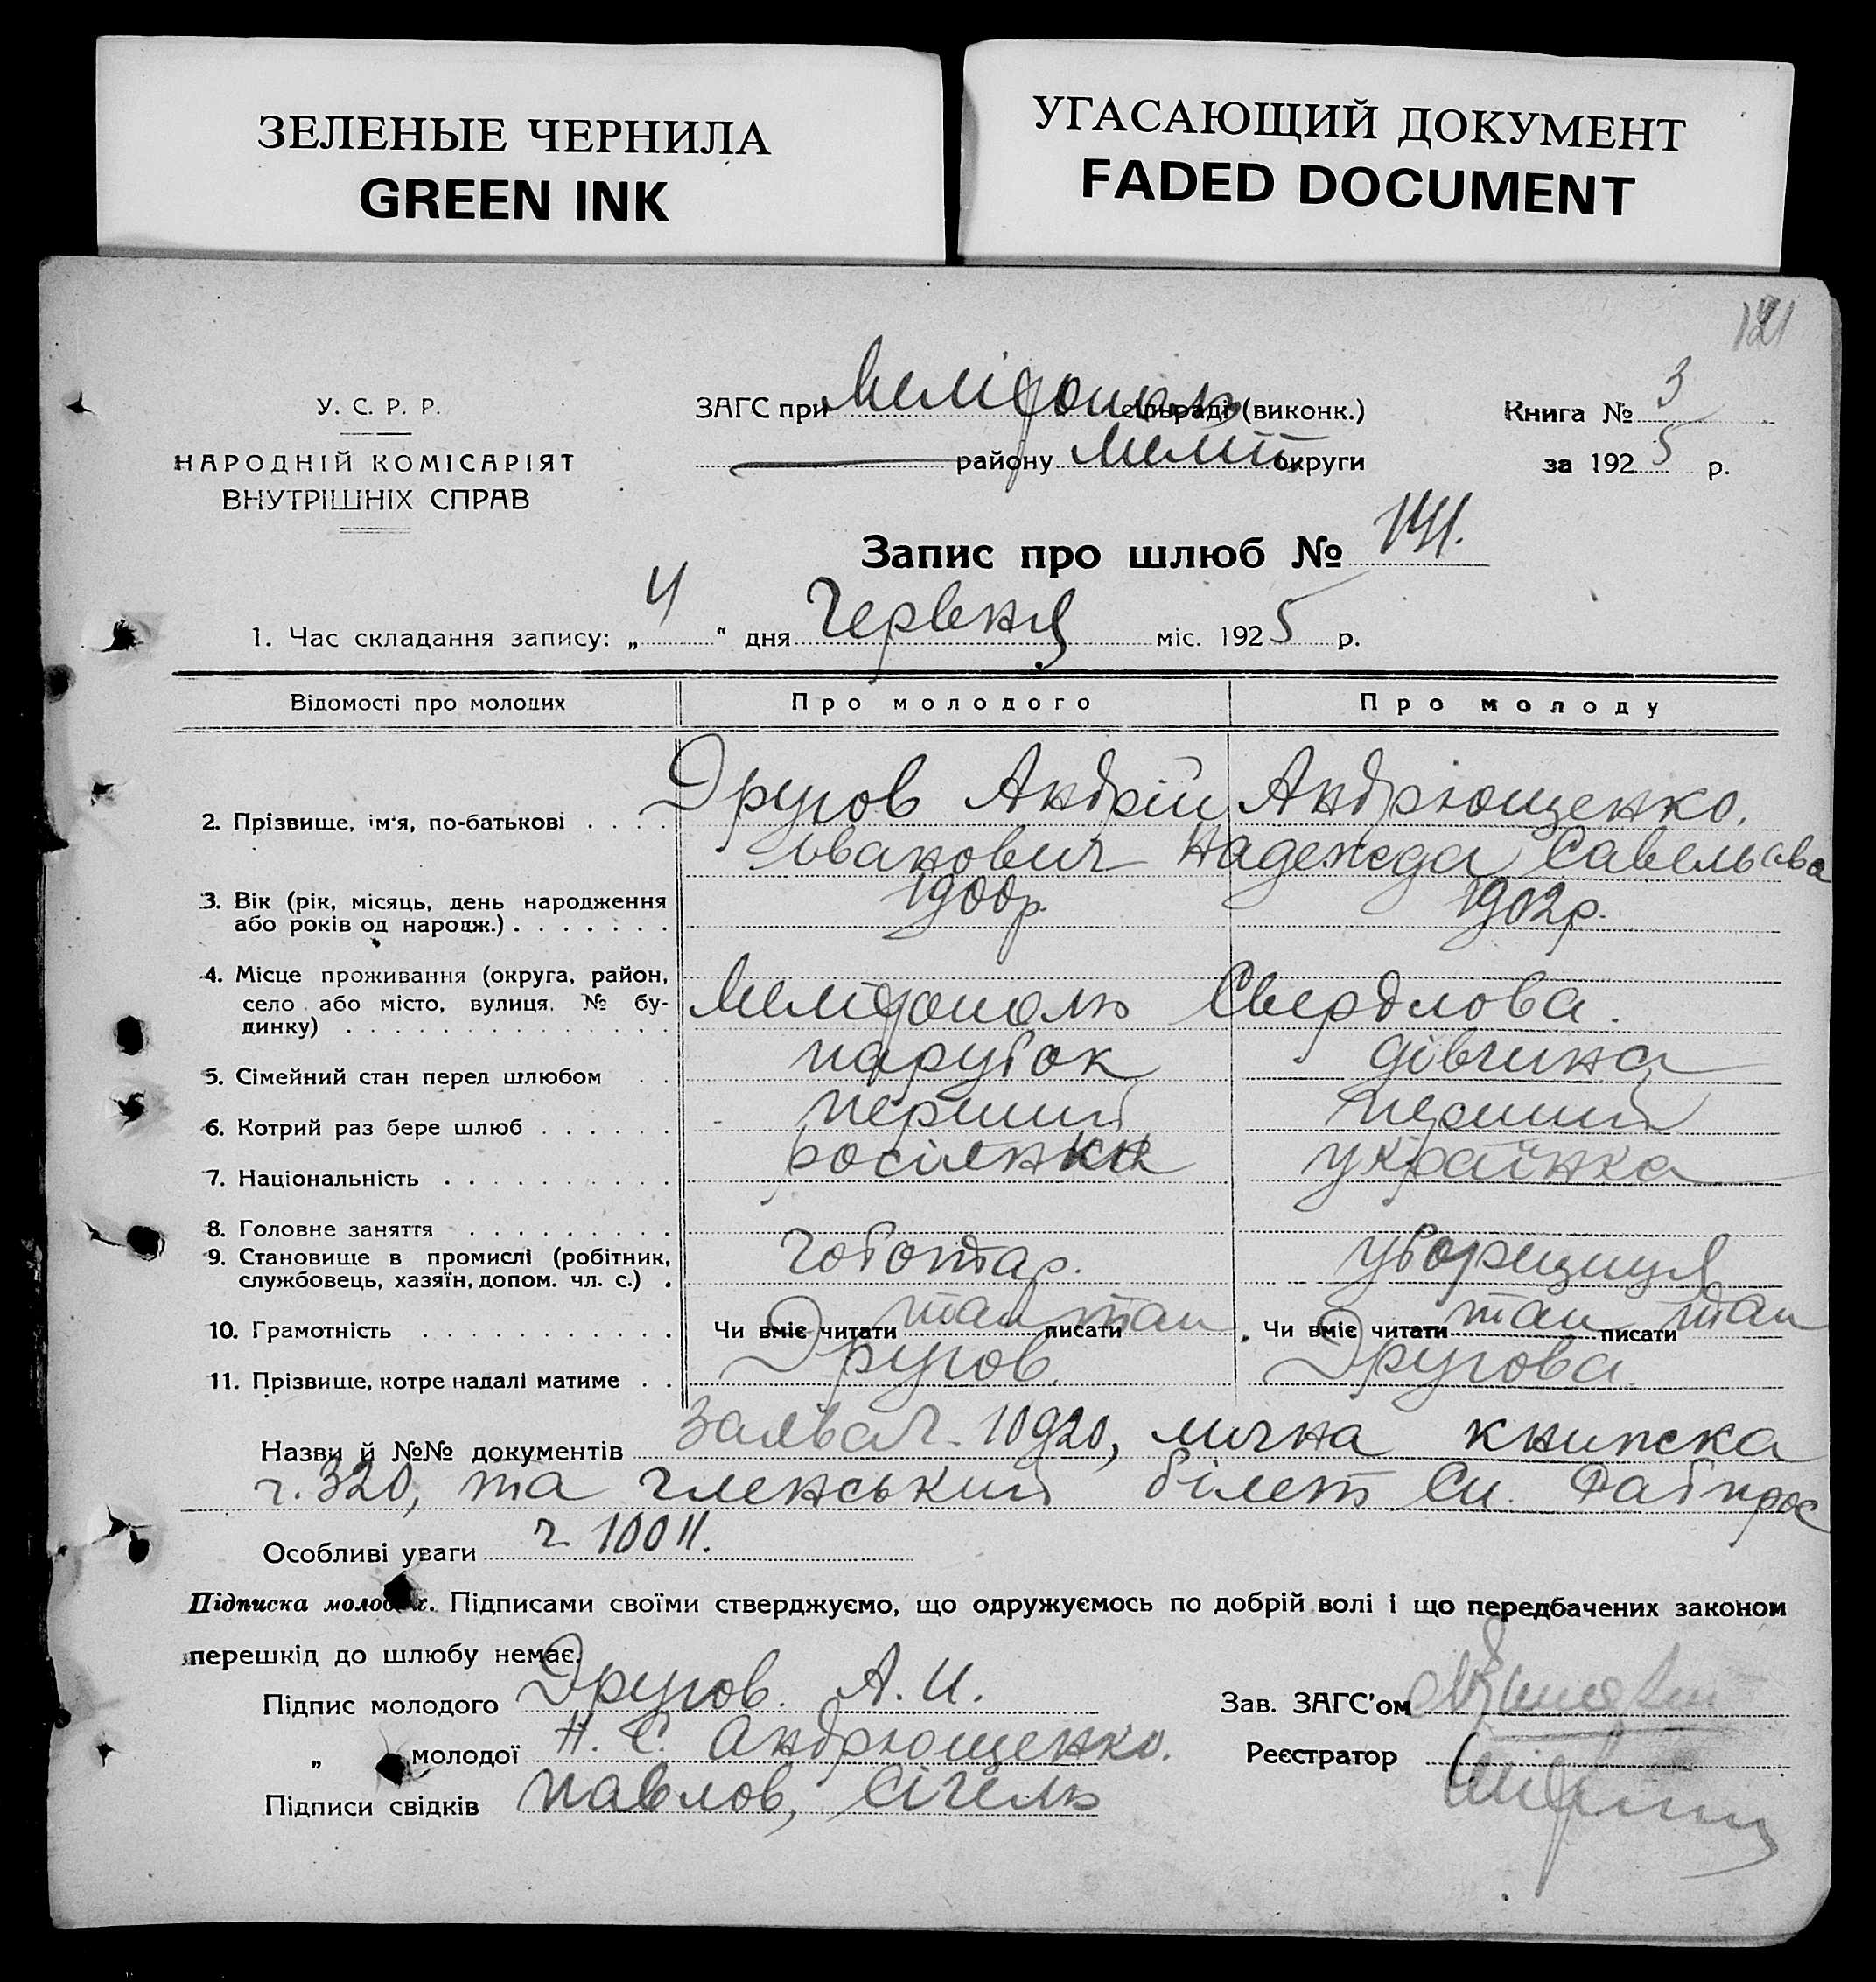 ЗЕЛЕНЫЕ ЧЕРНИЛА
GREEN INK
УГАСАЮЩИЙ ДОКУМЕНТ
FADED DOCUMENT
121
У. С. Р. Р.
НАРОДНІЙ КОМІСАРІЯТ
ВНУТРІШНІХ СПРАВ
ЗАГС при сільраді (виконк.)
району Меліт. округи
Книга № 3
за 1925 р.
Запис про шлюб № 141.
1. Час складання запису: „4“ дня Червня міс. 1925 р.
Відомості про молодих Про молодого Про молоду
2. Прізвище, ім'я, по-батькові Другов Андрій Андрющенко.
Іванович Надежда Савельєва
3. Вік (рік, місяць, день народження 1900р. 1902р.
або років од народж.)
4. Місце проживання (округа, район,
село або місто, вулиця, № бу- Мелітополь Свердлова.
динку)
5. Сімейний стан перед шлюбом парубок дівчина
6. Котрий раз бере шлюб перший перший
7. Національність українка
8. Головне заняття
9. Становище в промислі (робітник, чоботар.
службовець, хазяїн, допом. чл. с.)
10. Грамотність Чи вміє читати так писати так Чи вміє читати так писати так
11. Прізвище, котре надалі матиме Другов. Другова.
Назви й №№ документів Заява ч. 10920, лична книжка
ч. 320, та членський білет Сп.
Особливі уваги ч. 10011.
Підписка молодих. Підписами своїми стверджуємо, що одружуємось по добрій волі і що передбачених законом
перешкід до шлюбу немає.
Підпис молодого Другов. А. И.
Зав. ЗАГС'ом
„ молодої Н. С. Андрющенко.
Реєстратор
Підписи свідків Павлов, Сігель